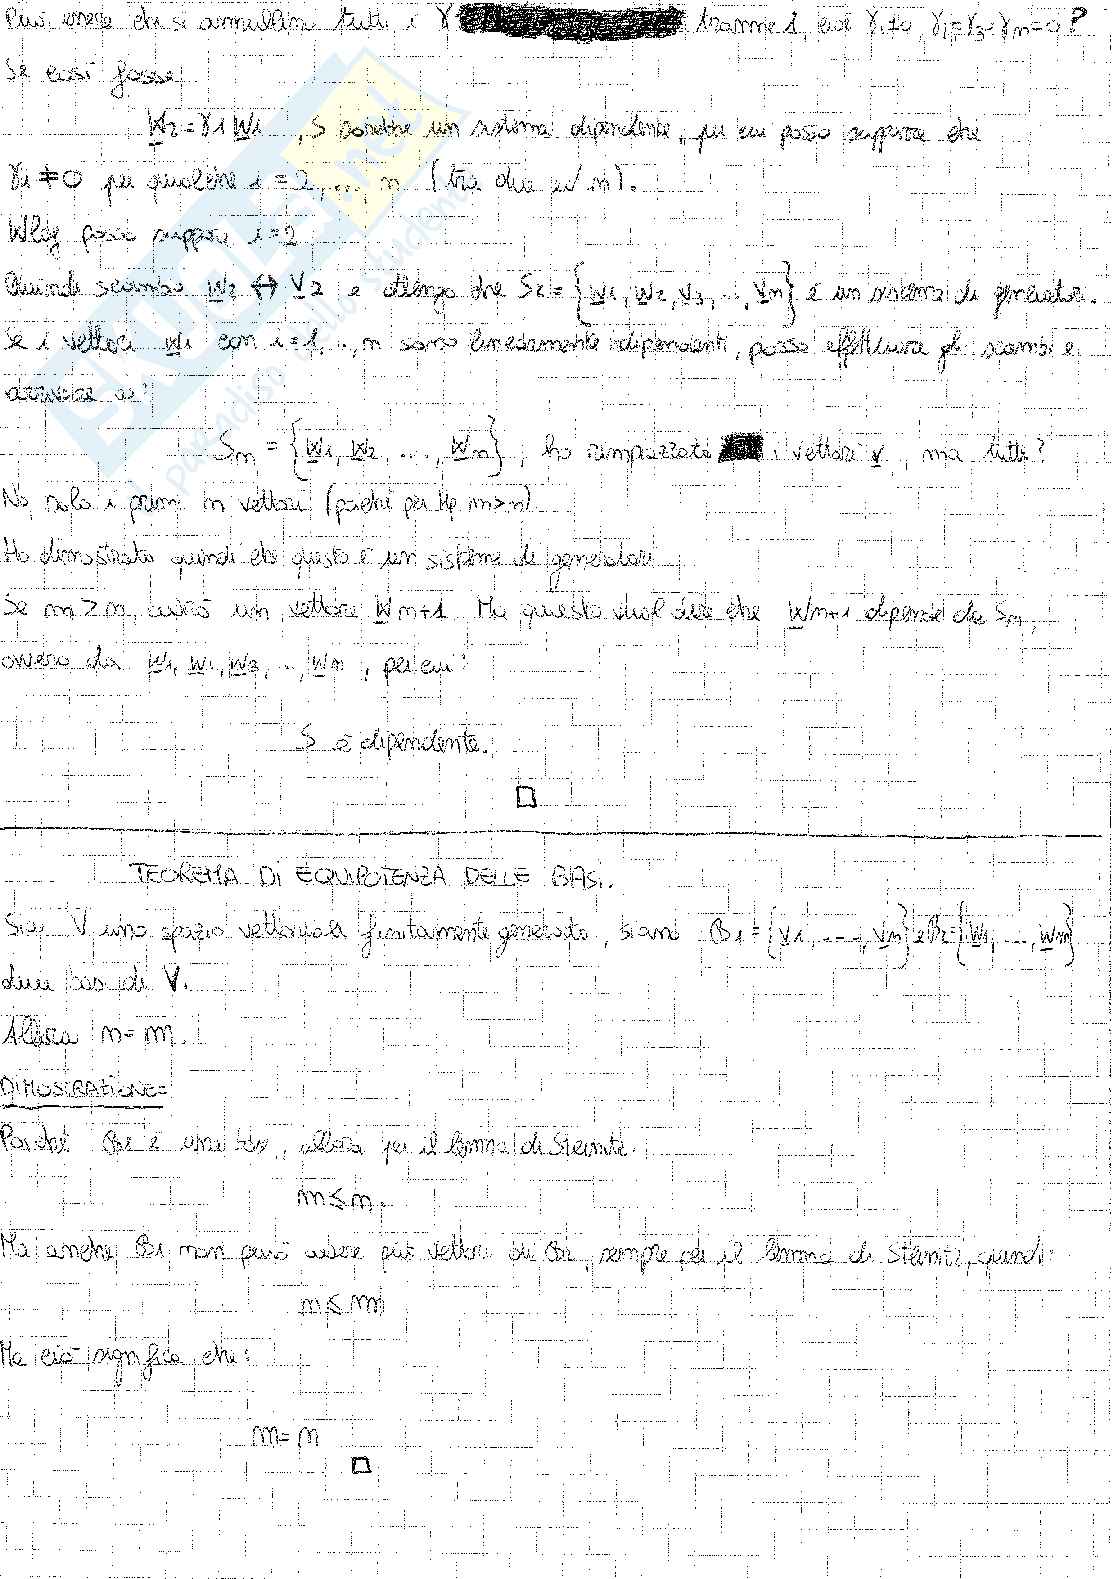 Può essere che si annullino tutti i γ tranne 1, cioè γ1≠0, γ2=γ3=γn=0?
Se così fosse
w2=γ1w1, S sarebbe un sistema dipendente, per cui posso supporre che
γi≠0 per qualche i=2,...,n (tra due e n).
Wlog posso supporre i=2
Quindi scambio w2 ↔ v2 e ottengo che S2={w1,w2,v3,..,vn} è un sistema di generatori.
Se i vettori wi con i=1,..,n sono linearmente indipendenti, posso effettuare gli scambi e
arrivare a:
Sn={w1,w2,...,wn}, ho rimpiazzato i vettori v, ma tutti?
No, solo i primi n vettori (poiché per Hp m>n)
Ho dimostrato quindi che questo è un sistema di generatori
Se m>n, avrò un vettore wn+1. Ma questo vuol dire che wn+1 dipende da Sn,
ovvero da w1,w1,w3,..,wn, per cui:
S è dipendente.
TEOREMA DI EQUIPOTENZA DELLE BASI.
Sia V uno spazio vettoriale finitamente generato, siano B1={v1,...,vn} e B2={w1,...,wm}
due basi di V.
Allora n=m.
DIMOSTRAZIONE=
Poiché B2 è una base, allora per il lemma di Steinitz
m≤n.
Ma anche B1 non può avere più vettori di B2, sempre per il lemma di Steinitz, quindi:
n≤m
Ma ciò significa che:
m=n